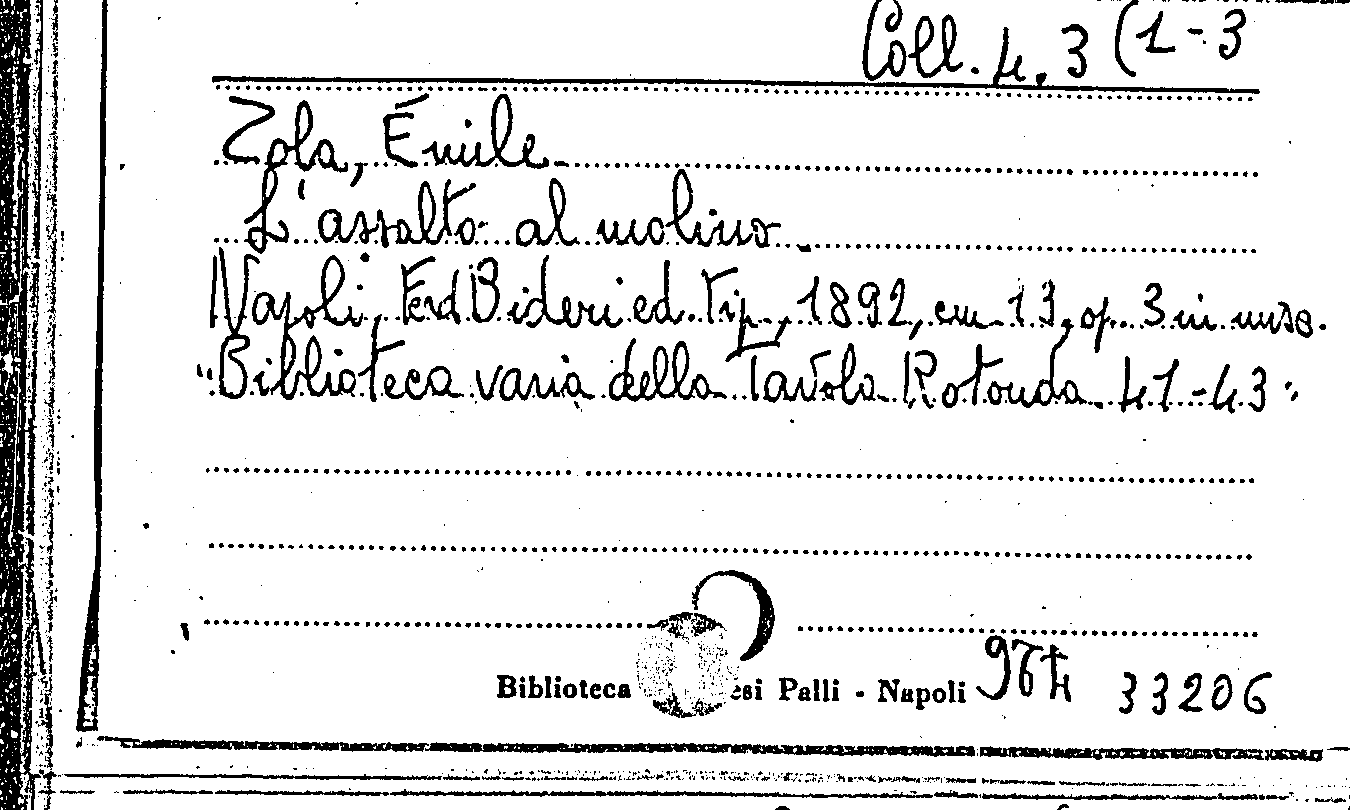 Coll. 4. 3 (1-3
Zola, Émile
L'assalto al molino.
Napoli, Ferd Bideri ed. Tip., 1892, cm 13, op. 3 in
"Biblioteca varia della Tavola Rotonda 41-43"
Biblioteca esi Palli - Napoli 964 33206